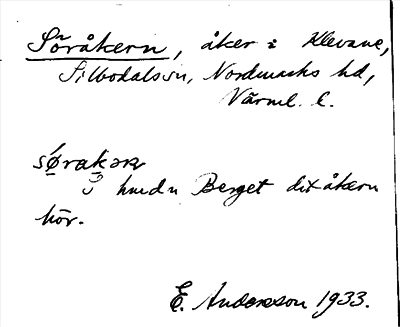 Söråkern, åker i Klevane,
Silbodals sn, Nordmarks hd,
Värml. l.
sø̀rakəɳ
hmdn Berget dit åkern
hör.
E. Andersson 1933.